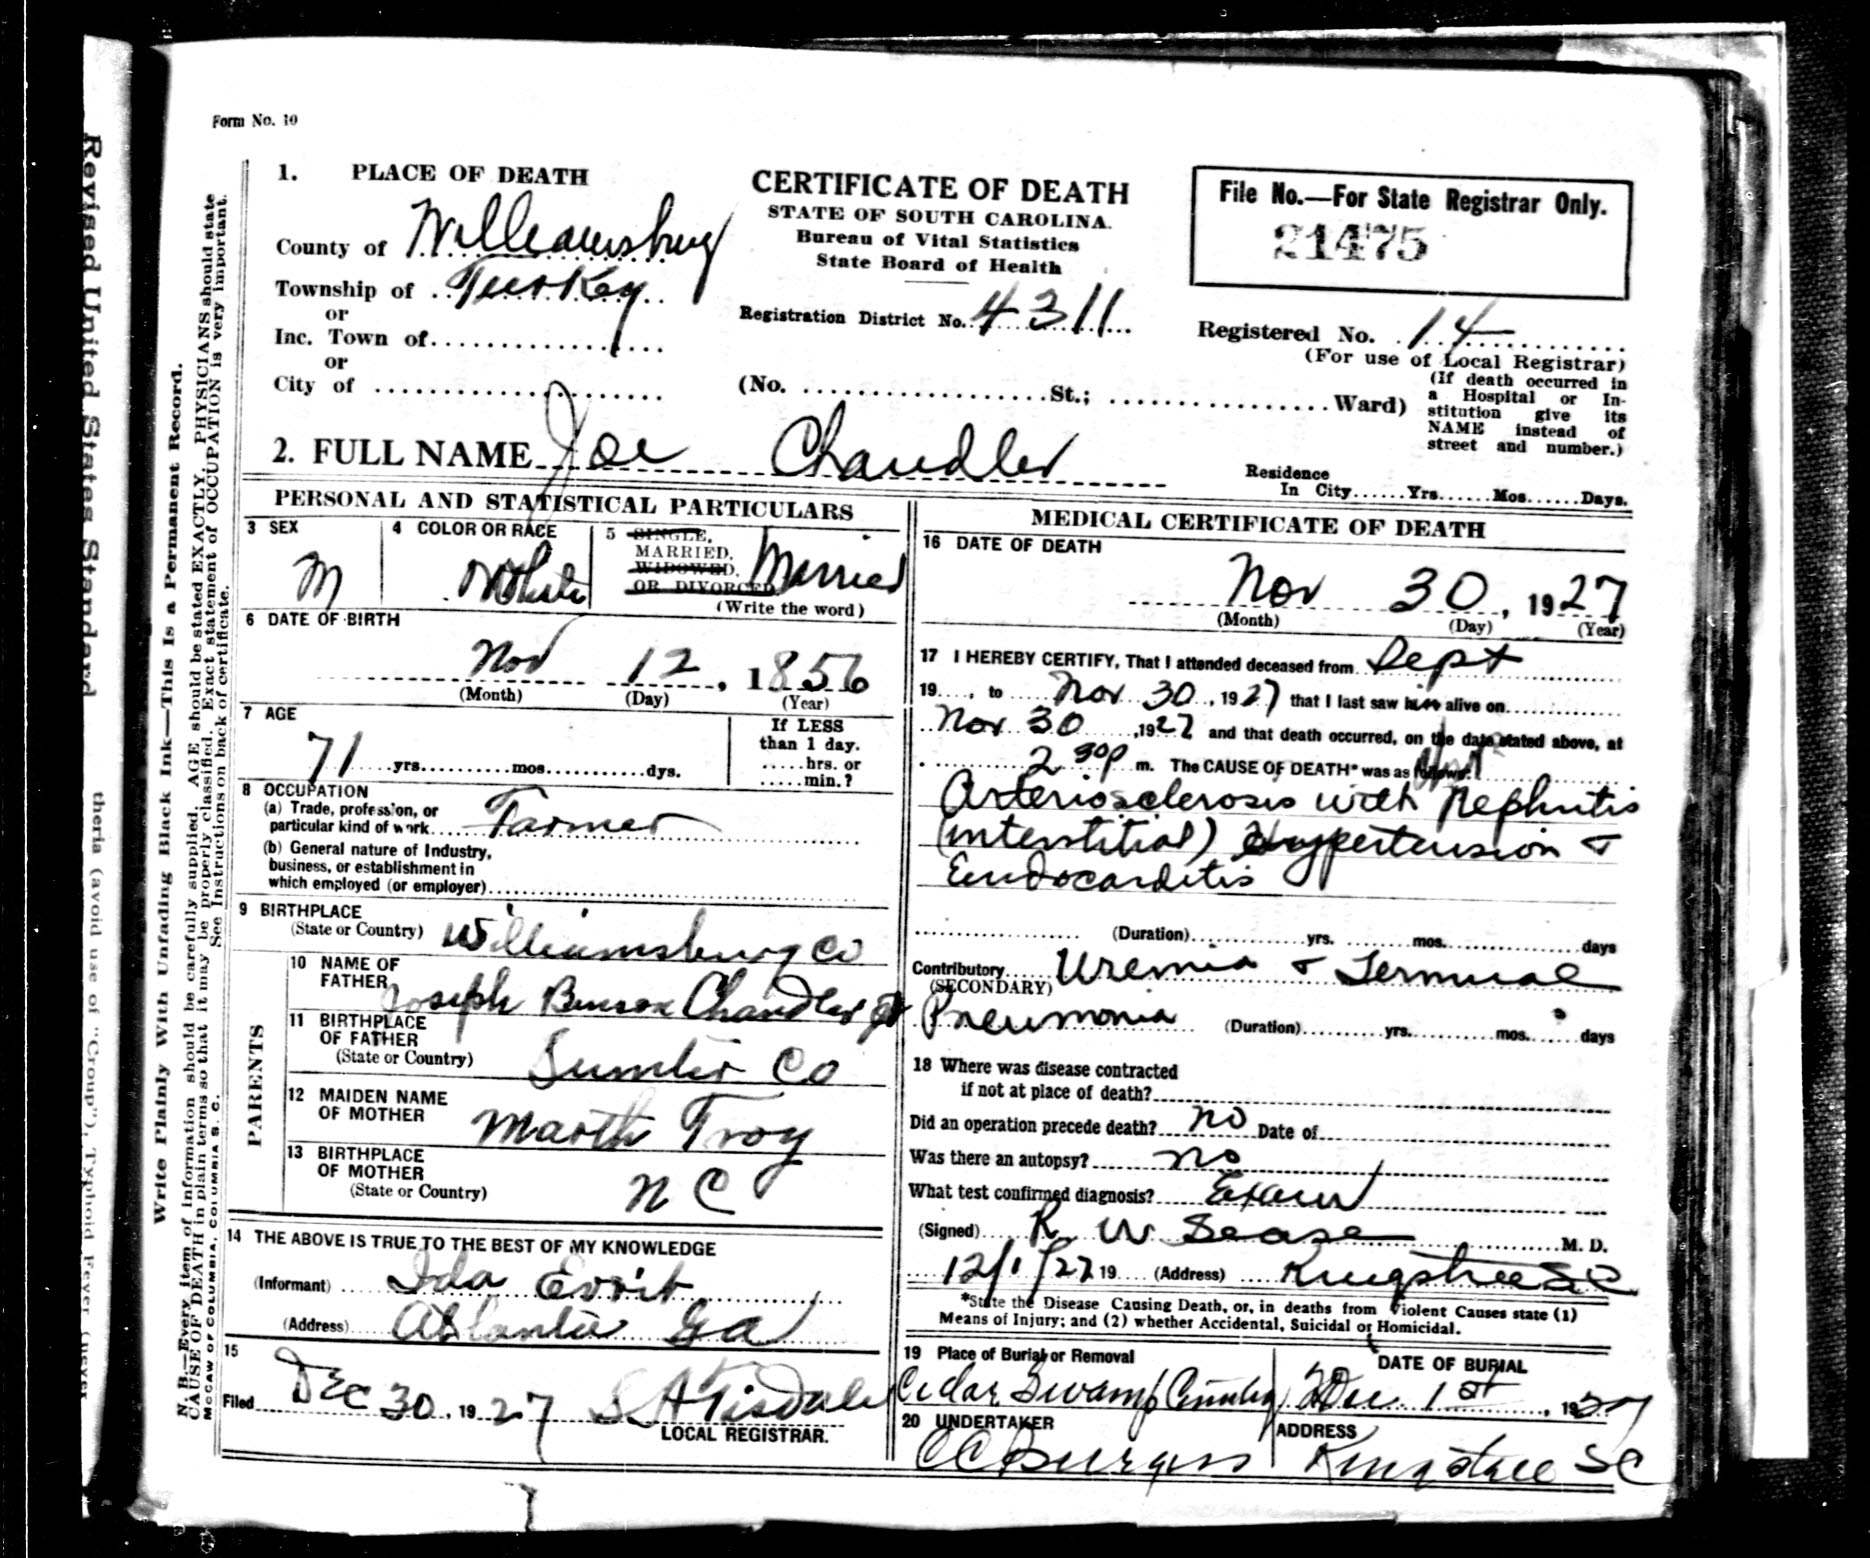 Form No. 10
1. PLACE OF DEATH
County of Williamsburg
Township of Turkey
or
Inc. Town of
or
City of
CERTIFICATE OF DEATH
STATE OF SOUTH CAROLINA.
Bureau of Vital Statistics
State Board of Health
Registration District No. 4311
File No.—For State Registrar Only.
21475
Registered No. 14
(For use of Local Registrar)
(No. St.; Ward)
(If death occurred in
a Hospital or In-
stitution give its
NAME instead of
street and number.)
2. FULL NAME Joe Chandler
Residence
In City Yrs. Mos. Days.
PERSONAL AND STATISTICAL PARTICULARS
3 SEX
M
4 COLOR OR RACE
White
5 SINGLE,
MARRIED,
WIDOWED,
OR DIVORCED
Married
(Write the word)
6 DATE OF BIRTH
Nov 12, 1856
(Month) (Day) (Year)
7 AGE
71 yrs. mos. dys.
If LESS
than 1 day.
hrs. or
min.?
8 OCCUPATION
(a) Trade, profession, or
particular kind of work Farmer
(b) General nature of Industry,
business, or establishment in
which employed (or employer)
9 BIRTHPLACE
(State or Country) Williamsburg Co
PARENTS
10 NAME OF
FATHER Joseph Benson Chandler
11 BIRTHPLACE
OF FATHER
(State or Country) Sumter Co
12 MAIDEN NAME
OF MOTHER Marth Troy
13 BIRTHPLACE
OF MOTHER
(State or Country) N C
14 THE ABOVE IS TRUE TO THE BEST OF MY KNOWLEDGE
(Informant) Ida
(Address) Atlanta Ga
15
Filed Dec 30, 1927 S A Tisdale
LOCAL REGISTRAR.
MEDICAL CERTIFICATE OF DEATH
16 DATE OF DEATH
Nov 30, 1927
(Month) (Day) (Year)
17 I HEREBY CERTIFY, That I attended deceased from Sept
19 , to Nov 30, 1927 that I last saw him alive on
Nov 30, 1927 and that death occurred, on the date stated above, at
2 30 p m. The CAUSE OF DEATH* was as follows:
Arteriosclerosis with Nephritis
(interstitial) Hypertension &
Endocarditis
(Duration) yrs. mos. days
Contributory Uremia & Terminal
(SECONDARY)
Pneumonia (Duration) yrs. mos. days
18 Where was disease contracted
if not at place of death?
Did an operation precede death? No Date of
Was there an autopsy? No
What test confirmed diagnosis? Exam
(Signed) R W Sease M. D.
12/1/27 19 (Address) Kingstree S C
*State the Disease Causing Death, or, in deaths from Violent Causes state (1)
Means of Injury; and (2) whether Accidental, Suicidal or Homicidal.
19 Place of Burial or Removal
Cedar Swamp Cemetery
DATE OF BURIAL
Dec 1st, 1927
20 UNDERTAKER
C C Burgess
ADDRESS
Kingstree S C
Write Plainly With Unfading Black Ink—This Is a Permanent Record.
N. B.—Every item of information should be carefully supplied. AGE should be stated EXACTLY. PHYSICIANS should state
CAUSE OF DEATH in plain terms so that it may be properly classified. Exact statement of OCCUPATION is very important.
See Instructions on back of certificate.
McCAW OF COLUMBIA, COLUMBIA S. C.
Revised United States Standard
theria (avoid use of "Croup"), Typhoid Fever